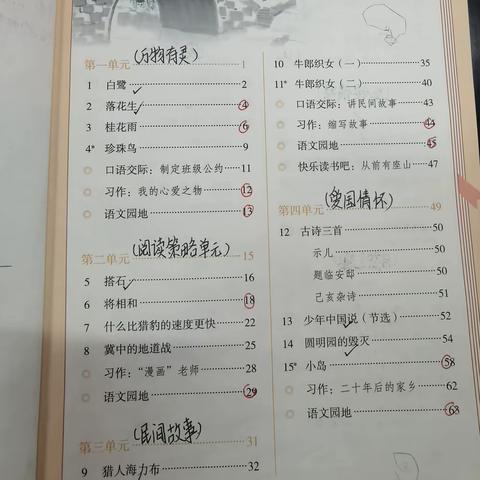 第一单元(万物有灵) 1
1 白鹭 2
2 落花生 4
3 桂花雨 6
4* 珍珠鸟 9
口语交际：制定班级公约 11
习作：我的心爱之物 12
语文园地 13
第二单元(阅读策略单元) 15
5 搭石 16
6 将相和 18
7 什么比猎豹的速度更快 22
8 冀中的地道战 25
习作：“漫画”老师 28
语文园地 29
第三单元(民间故事) 31
9 猎人海力布 32
10 牛郎织女（一） 35
11* 牛郎织女（二） 40
口语交际：讲民间故事 43
习作：缩写故事 44
语文园地 45
快乐读书吧：从前有座山 47
第四单元(爱国情怀) 49
12 古诗三首 50
示儿 50
题临安邸 50
己亥杂诗 51
13 少年中国说（节选） 52
14 圆明园的毁灭 54
15* 小岛 58
习作：二十年后的家乡 62
语文园地 63